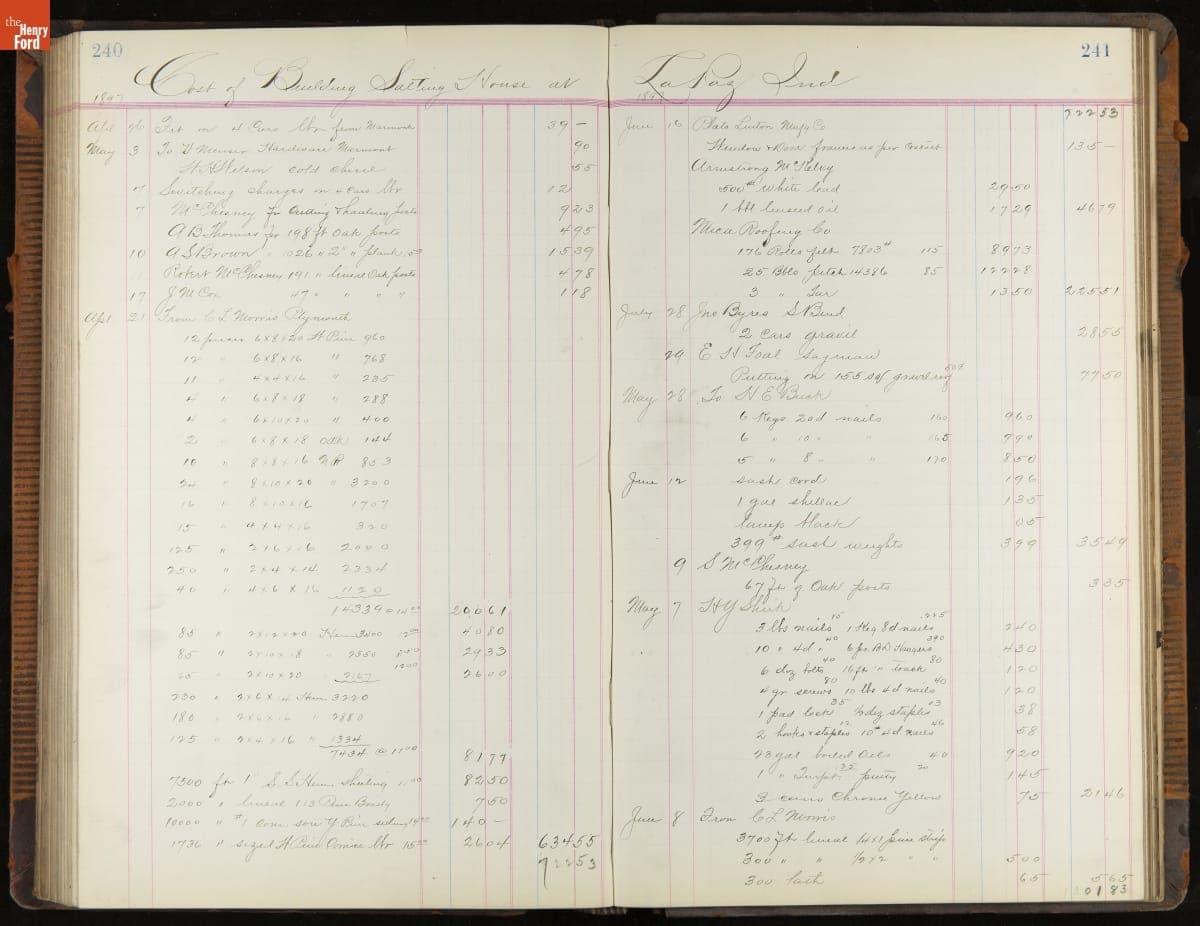 the Henry Ford
240
Cost of Building Salting House at
1897
Apl 26 Frt on 4 Cars lbr from Mermont 39 -
May 3 To D Menser Hardware Mermont 90
W. H. Wilson cold chisel 55
7 Switching charges on 4 cars lbr 12
7 McChesney for Cutting & hauling posts 923
A B Thomas for 198 ft Oak posts 495
10 A S Brown " 1026 " 2" " plank 1539
Robert McChesney 191 " lineal Oak posts 478
17 J M Cox 47 " " " " 118
Apl 21 From C L Morris Plymouth
12 pieces 6x8x20 W Pine 960
12 " 6x8x16 " 768
11 " 4x4x16 " 235
4 " 6x8x18 " 288
4 " 6x10x20 " 400
2 " 6x8x18 Oak 144
10 " 8x8x16 853
24 " 8x10x20 " 3200
16 " 8x10x16 1707
15 " 4x4x16 320
125 " 2x6x16 2000
250 " 2x4x14 2334
40 " 4x6x16 1120
14339 @ 14 00 20061
85 " 2x12x20 Hem 3400 12 00 4080
85 " 2x10x18 " 2550 11 50 2933
65 " 2x10x20 2167 12 00 2600
230 " 2x6x14 Hem 3220
180 " 2x6x16 " 2880
125 " 2x4x16 " 1334
7434 @ 11 00 8177
7500 ft 1" S.S. Hem Sheeting 11 00 8250
2000 " lineal 113 Pine 750
10000 " #1 com Y Pine siding 14 00 140 -
1736 " sized W Pine Cornice lbr 15 00 2604 63455
72253
241
La Paz Ind
1897
72253
June 16 Plato Linton Mufg Co
Window & Door frames as per contract 135 -
Armstrong McKelvy
500 # White lead 2950
1 bbl linseed oil 1729 4679
Mica Roofing Co
176 Rolls felt 7803 # 115 8973
25 Bbls pitch 14386 85 12228
3 " Tar 1350 22551
July 28 Jno Byres S Bend
2 cars gravil 2855
29 E H
Putting on 155 sq 50¢ 7750
May 28 To H E Buck
6 Kegs 20d nails 160 960
6 " 10 " " 165 990
5 " 8 - " 170 850
June 12 sash cord 196
1 gal shellac 135
lamp black 05
399 # sash weights 399 3549
9 S McChesney
67 ft of Oak posts 335
May 7 H Y Shirk
3 lbs nails 15 1 Keg 8d nails 225 240
10 " 4d " 40 6 pr Hangers 390 430
6 doz bolts 40 16 ft " track 80 120
4 gr screws 80 10 lbs 4d nails 40 120
1 pad lock 35 ½ doz staples 03 38
2 hooks & staples 12 10 # 4d nails 46 58
23 gal boiled Oils 40 920
1 " Turpt 35 putty 20 145
3 cans Chrome Yellow 75 2146
June 8 From C L Morris
3700 ft lineal ¼x1 pine strips
300 " " ½x2 " " 500
300 lath 65 565
130183